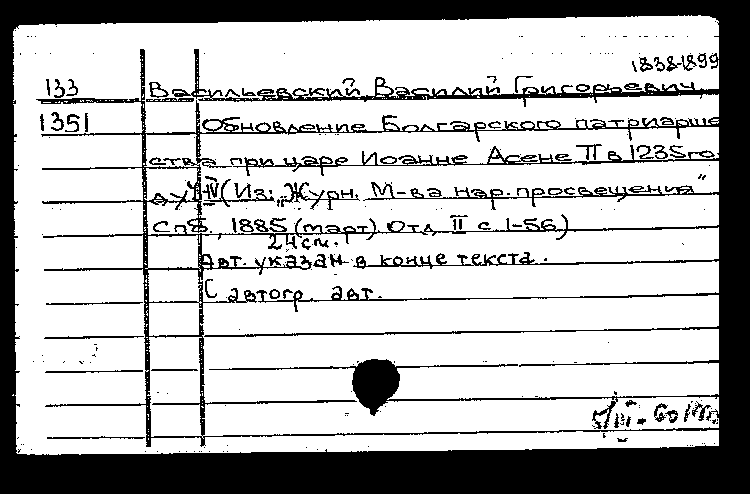 1838-1899
133 Васильевский, Василий Григорьевич,
1351 Обновление Болгарского патриарше
ства при царе Иоанне Асене II в 1235 го
ду I-IV (Из: „Журн. М-ва нар. просвещения"
Спб., 1885 (март) Отд II с 1-56)
24 см.
Авт. указан в конце текста.
С автогр. авт.